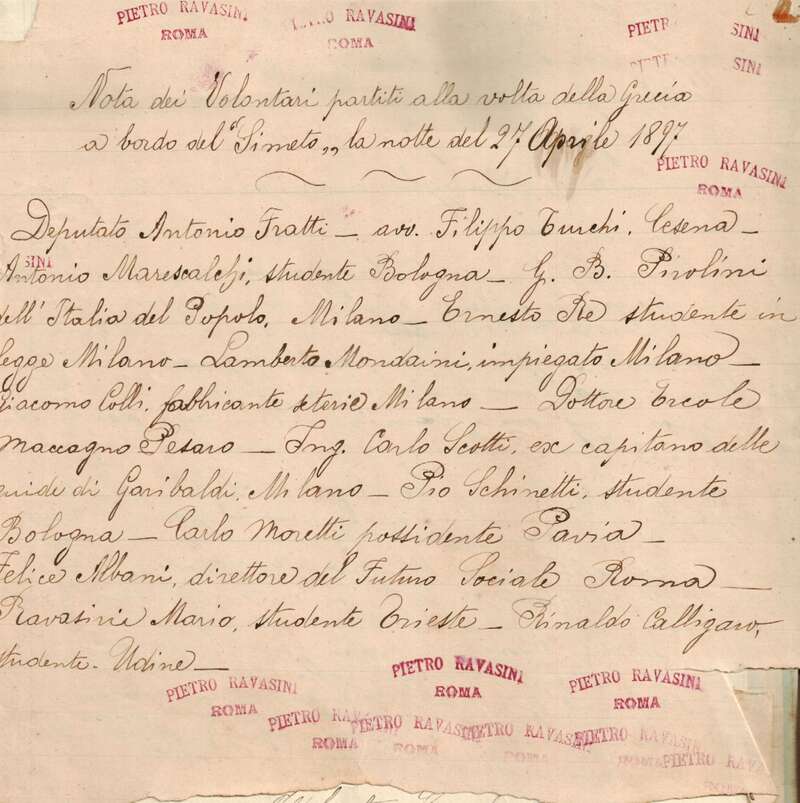 PIETRO RAVASINI
ROMA
PIETRO RAVASINI
ROMA
PIETRO SINI
SINI
Nota dei Volontari partiti alla volta della Grecia
a bordo del "Simeto„ la notte del 27 Aprile 1897
PIETRO RAVASINI
ROMA
Deputato Antonio Fratti — avv. Filippo Turchi, Cesena —
SINI
Antonio Marescalchi, studente Bologna — G. B. Pirolini
dell' Italia del Popolo, Milano — Ernesto Re studente in
legge Milano — Lamberto Mondaini, impiegato Milano —
Giacomo Colli, fabbricante seterie Milano — Dottore Ercole
Maccagno Pesaro — Ing. Carlo Scotti, ex capitano delle
guide di Garibaldi, Milano — Pio Schinetti, studente
Bologna — Carlo Moretti possidente Pavia —
Felice Albani, direttore del Futuro Sociale Roma —
Ravasini Mario, studente Trieste — Rinaldo Calligaro,
studente - Udine —
PIETRO RAVASINI
ROMA
PIETRO RAVASINI
ROMA
PIETRO RAVASINI
ROMA
PIETRO RAVASINI
ROMA
PIETRO RAVASINI
ROMA
PIETRO RAVASINI
ROMA
PIETRO RAVASINI
ROMA
PIETRO RAVASINI